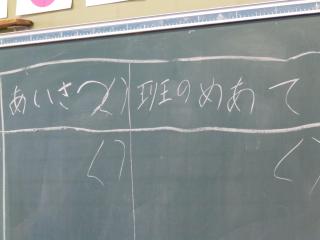 あいさつ( ) 班のめあて
( ) ( )